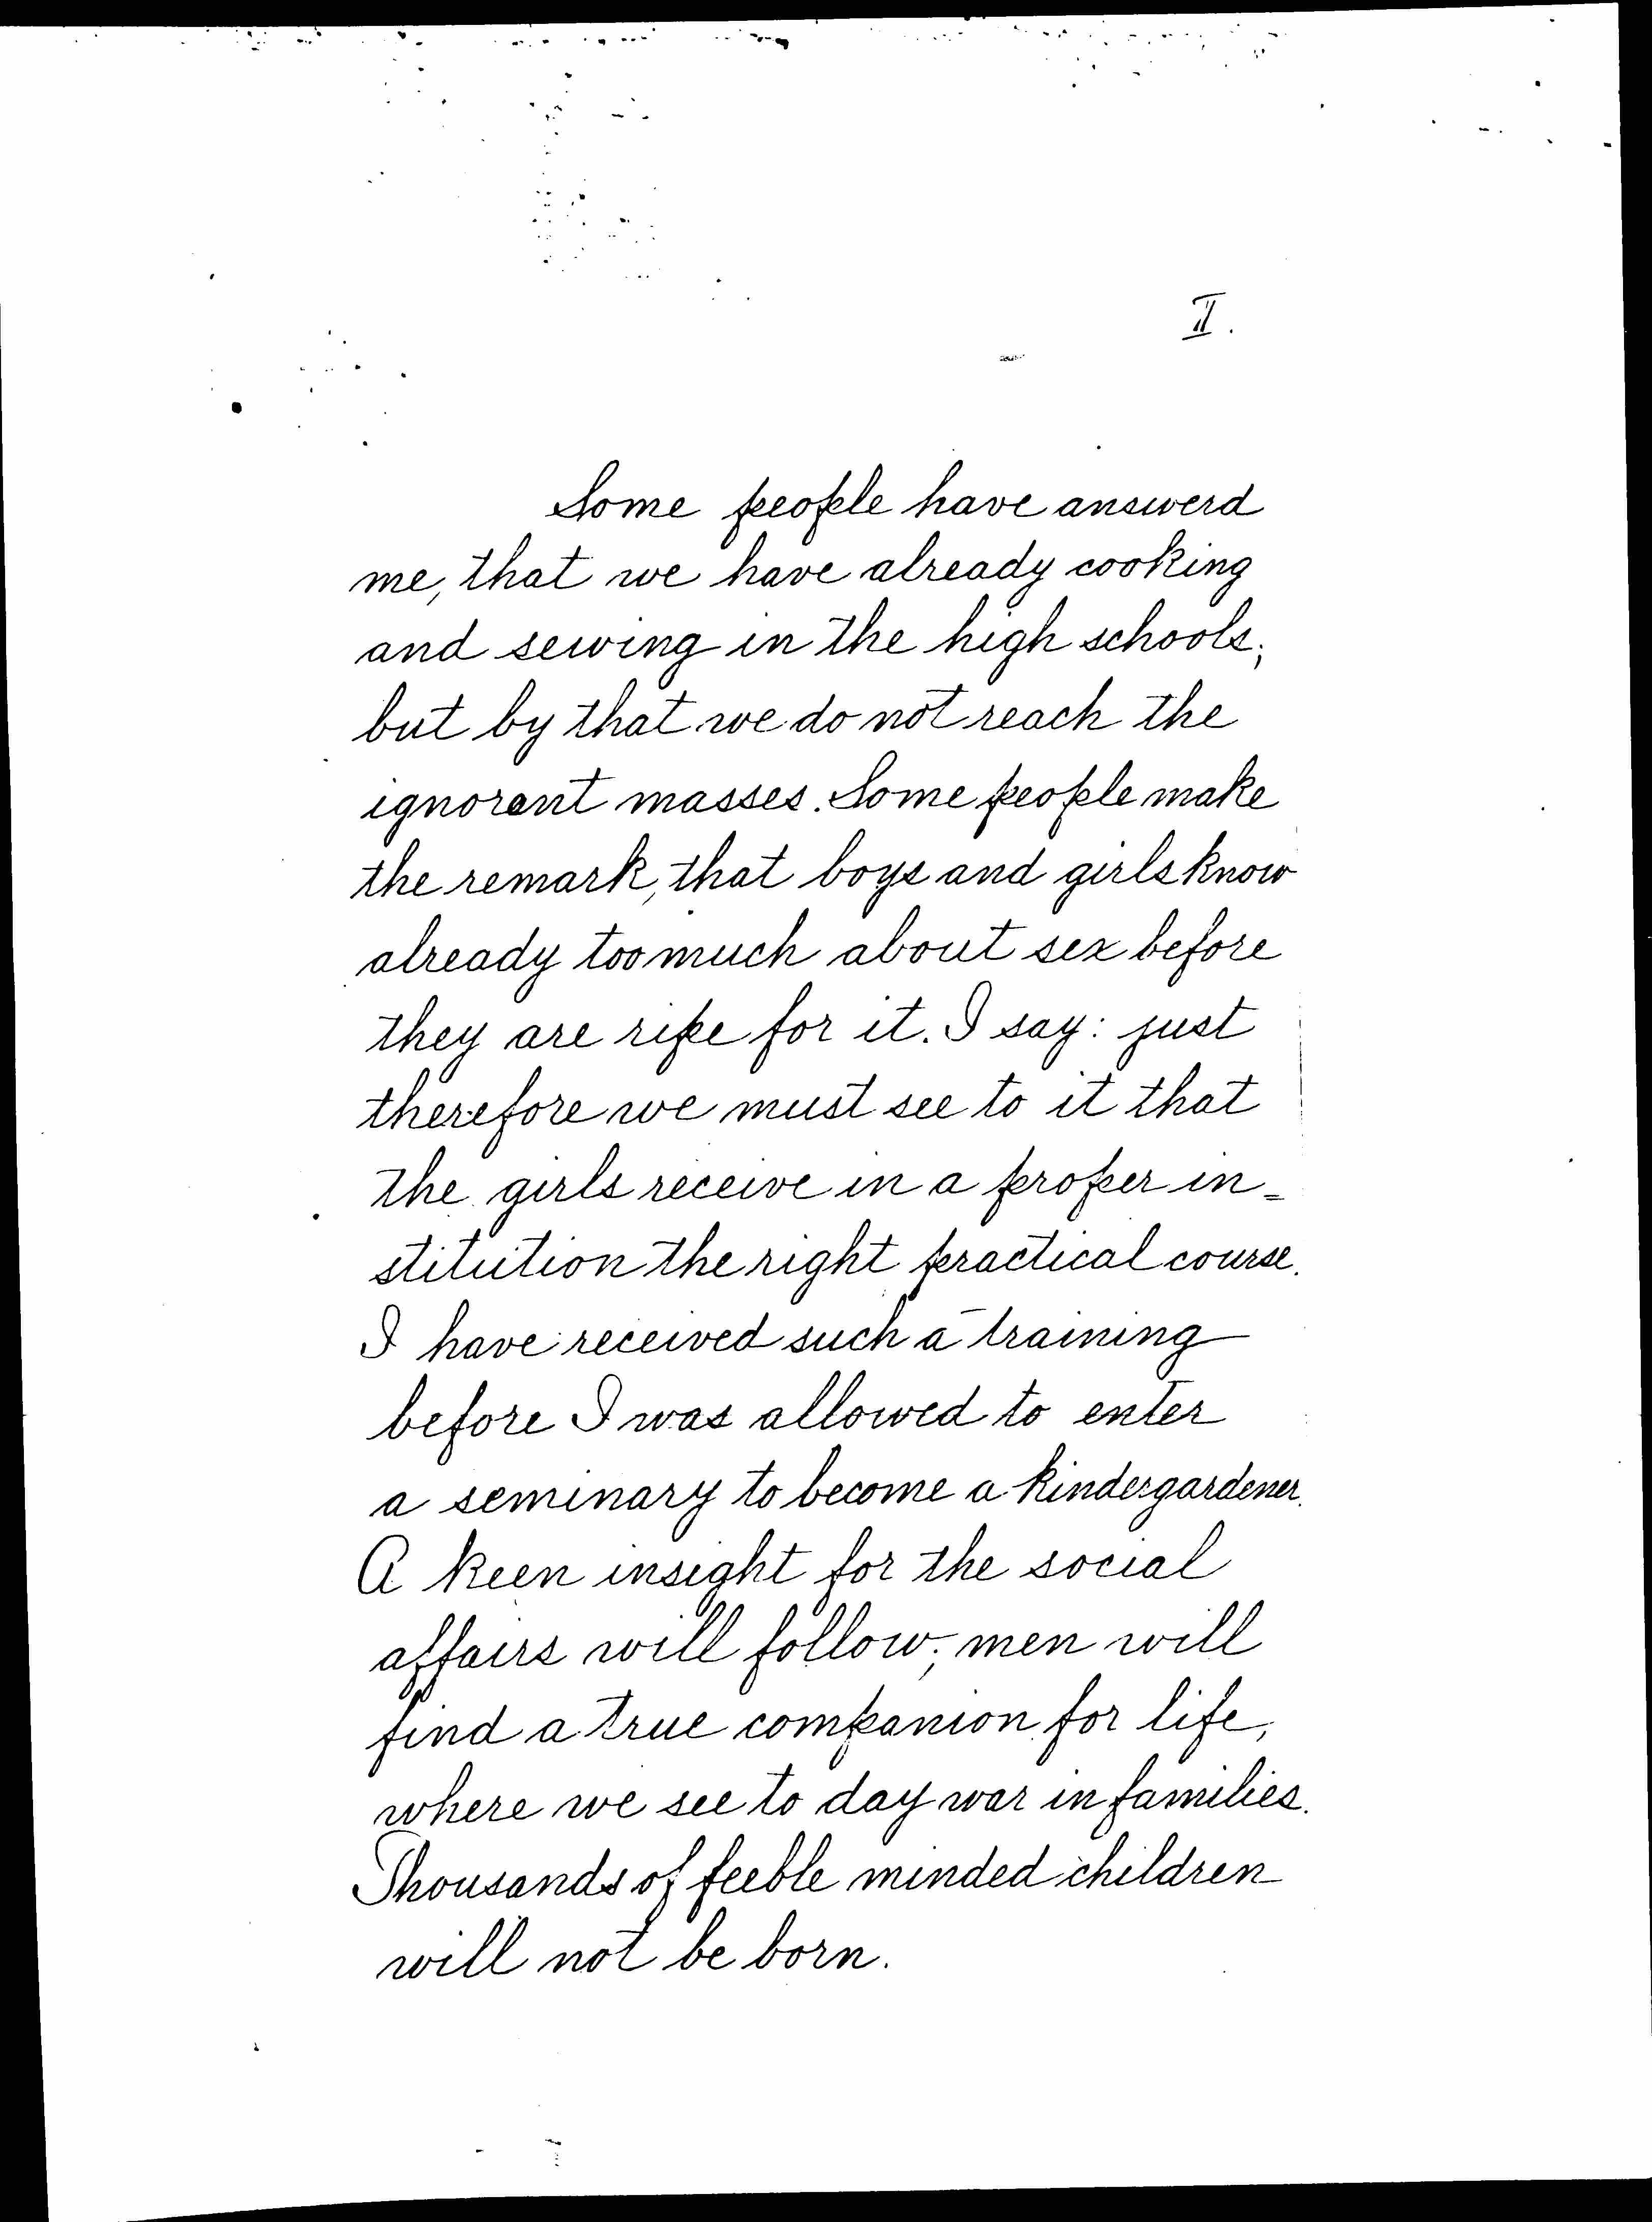 II.
Some people have answerd
me, that we have already cooking
and sewing in the high schools;
but by that we do not reach the
ignorant masses. Some people make
the remark, that boys and girls know
already too much about sex before
they are ripe for it. I say: just
therefore we must see to it that
the girls receive in a proper in=
stitution the right practical course.
I have received such a training
before I was allowed to enter
a seminary to become a kindergardener.
A keen insight for the social
affairs will follow; men will
find a true companion for life,
where we see to day war in families.
Thousands of feeble minded children
will not be born.